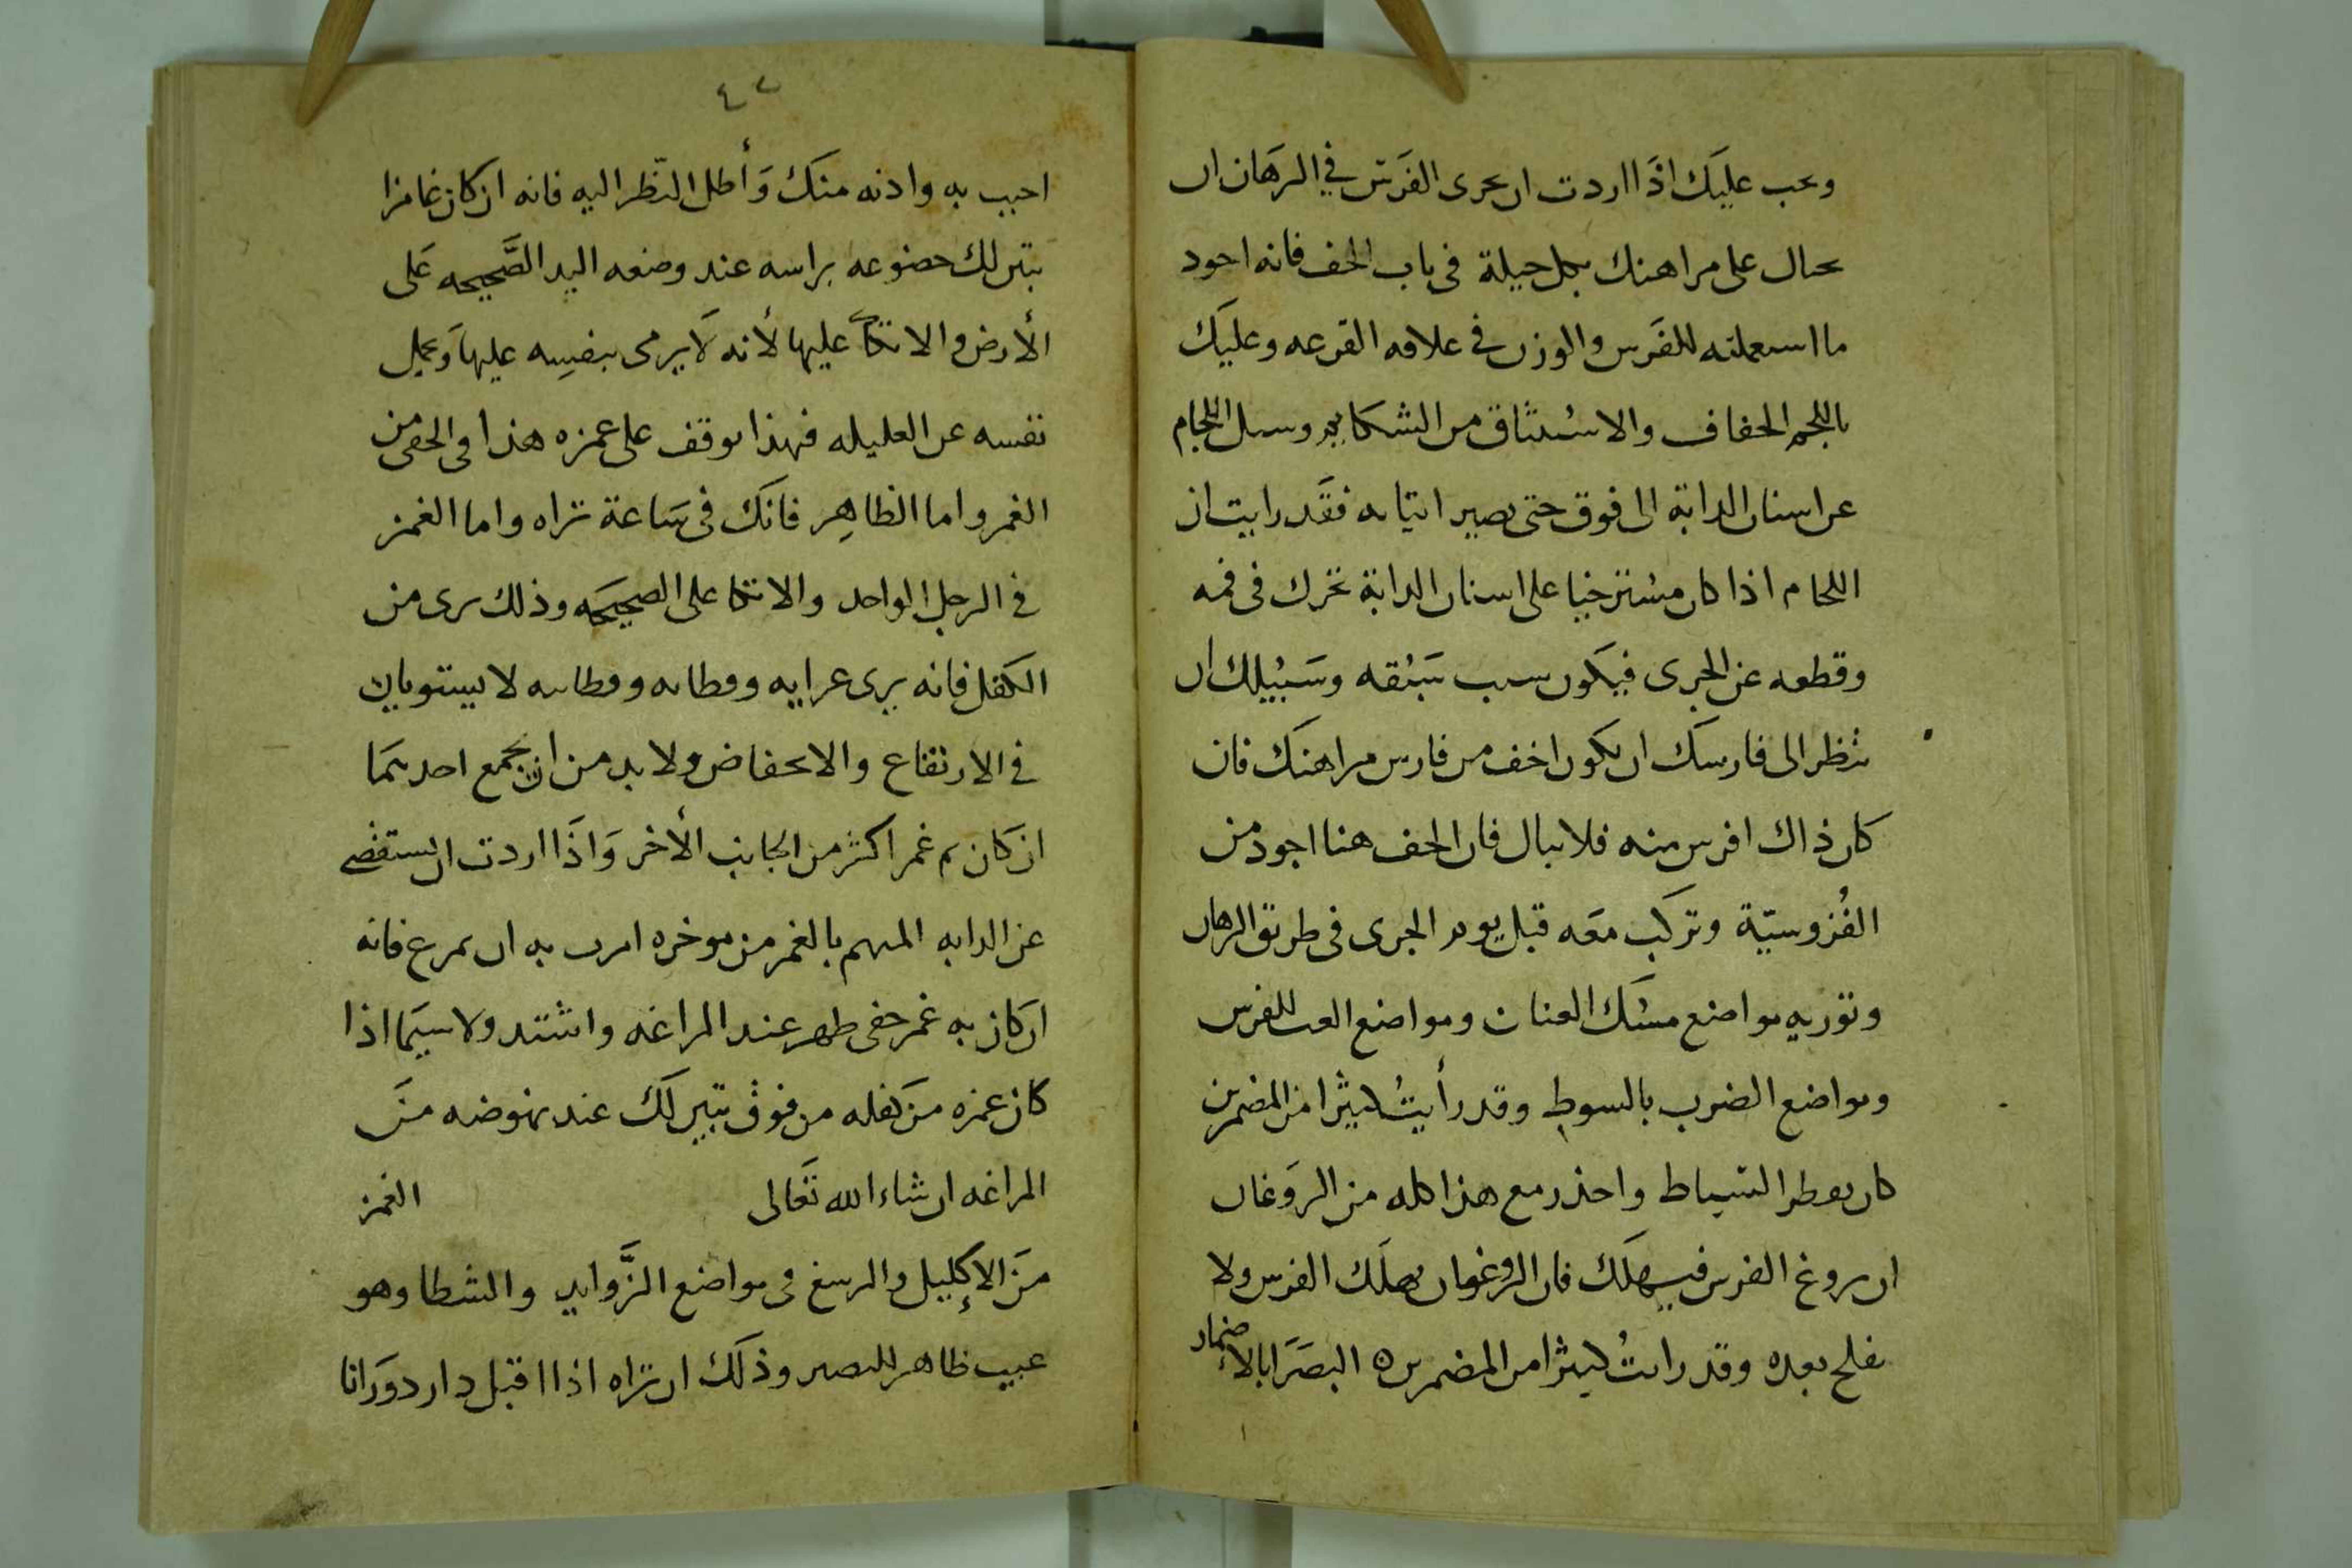 ويجب عليك اذا اردت ان تجرى الفرس في الرهان ان
تحتال على مراهنك بكل حيلة فى باب الخف فانه اجود
ما استعملته للفرس والوزن فى علافه القرعه وعليك
باللجم الخفاف والاستثاق من الشكايم وسيل اللجام
عن اسنان الدابة الى فوق حتى يصير انيابه فقد رايت ان
اللجام اذا كان مسترخيا على اسنان الدابة تحرك فى فمه
وقطعه عن الجرى فيكون سبب سبقه وسبيلك ان
تنظر الى فارسك ان يكون اخف من فارس مراهنك فان
كان ذاك افرس منه فلا تبال فان الخف هنا اجود من
الفروسية وتركب معه قبل يوم الجرى فى طريق الرهان
وتوريه مواضع مسك العنان ومواضع للفرس
ومواضع الضرب بالسوط وقد رأيت كثيرا من المضمرين
كان السياط واحذر مع هذا كله من الروغان
ان يروغ الفرس فيهلك فان الروغان يهلك الفرس ولا
يفلح بعده وقد رايت كثيرا من المضمرين ه البصرا بالاضمار
٤٧
اجيب به وادنه منك وأطل النظر اليه فانه ان كان غامزا
تبين لك خضوعه براسه عند وضعه اليد الصحيحه على
الأرض والاتكاء عليها لأنه لا يرمى بنفسه عليها ويميل
نفسه عن العليله فهذا يوقف على غمزه هذا فى الخفى من
الغمز واما الظاهر فانك فى ساعة تراه واما الغمز
في الرجل الواحد والاتكا على الصحيحه وذلك يرى من
الكفل فانه يرى غرابيه وقطاته وقطاته لا يستويان
في الارتفاع والانخفاض ولا بد من ان يجمع احدهما
ان كان ثم غمز اكثر من الجانب الأخر واذا اردت ان تستقصى
عن الدابه المتهم بالغمز من موخره امرت به ان يمرغ فانه
ان كان به غمز خفى ظهر عند المراغه واشتد ولا سيما اذا
كان غمزه من كفله من فوق تبين لك عند نهوضه من
المراغه ان شاء الله تعالى الغمز
من الإكليل والرسغ فى مواضع الزوايد والشظا وهو
عيب ظاهر للبصر وذلك ان تراه اذا اقبل دار دورانا